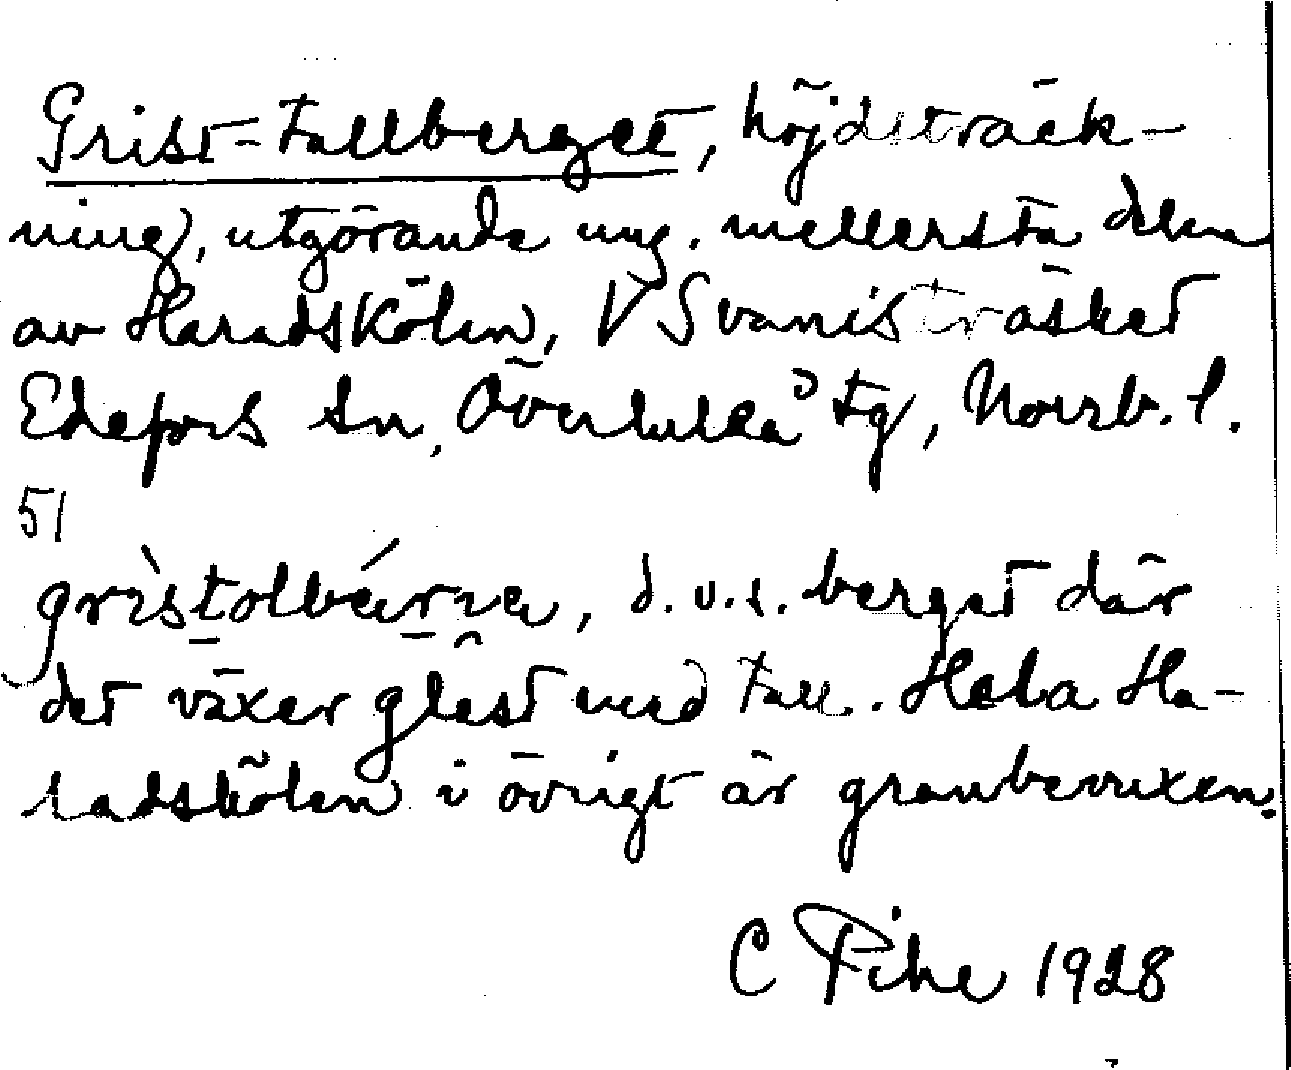 Grist-tallberget, höjdsträck-
ning, utgörande ung. mellersta delen
av Haradskölen, V Svanisträsket
Edefors sn, Överluleå tg, Norrb. l.
51
grìstolbǽrɜe, d.v.s. berget där
det växer glest med tall. Hela Ha-
radskölen i övrigt är granbevuxen.
C Pihe 1928